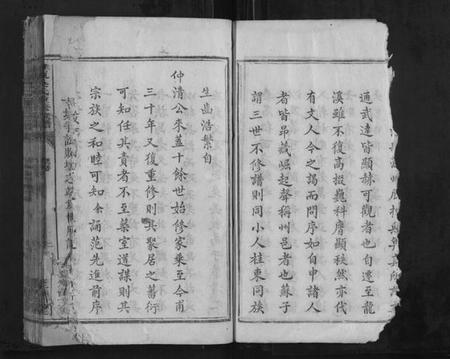 通武達皆顯赫可觀者也自遷至龍
溪雖不復高掇巍科膺顯秩然亦代
有文人今之謁而問序如自申諸人
者皆昂藏崛起聲稱州邑者也蘇子
謂三世不修譜則同小人桂東同族
生齒浩繁自
仲清公來蓋十餘世始修家乘至今甫
三十年又復重修則其聚居之蕃衍
可知任其責者不至築室道謀則其
宗族之和睦可知余誦范先進前序